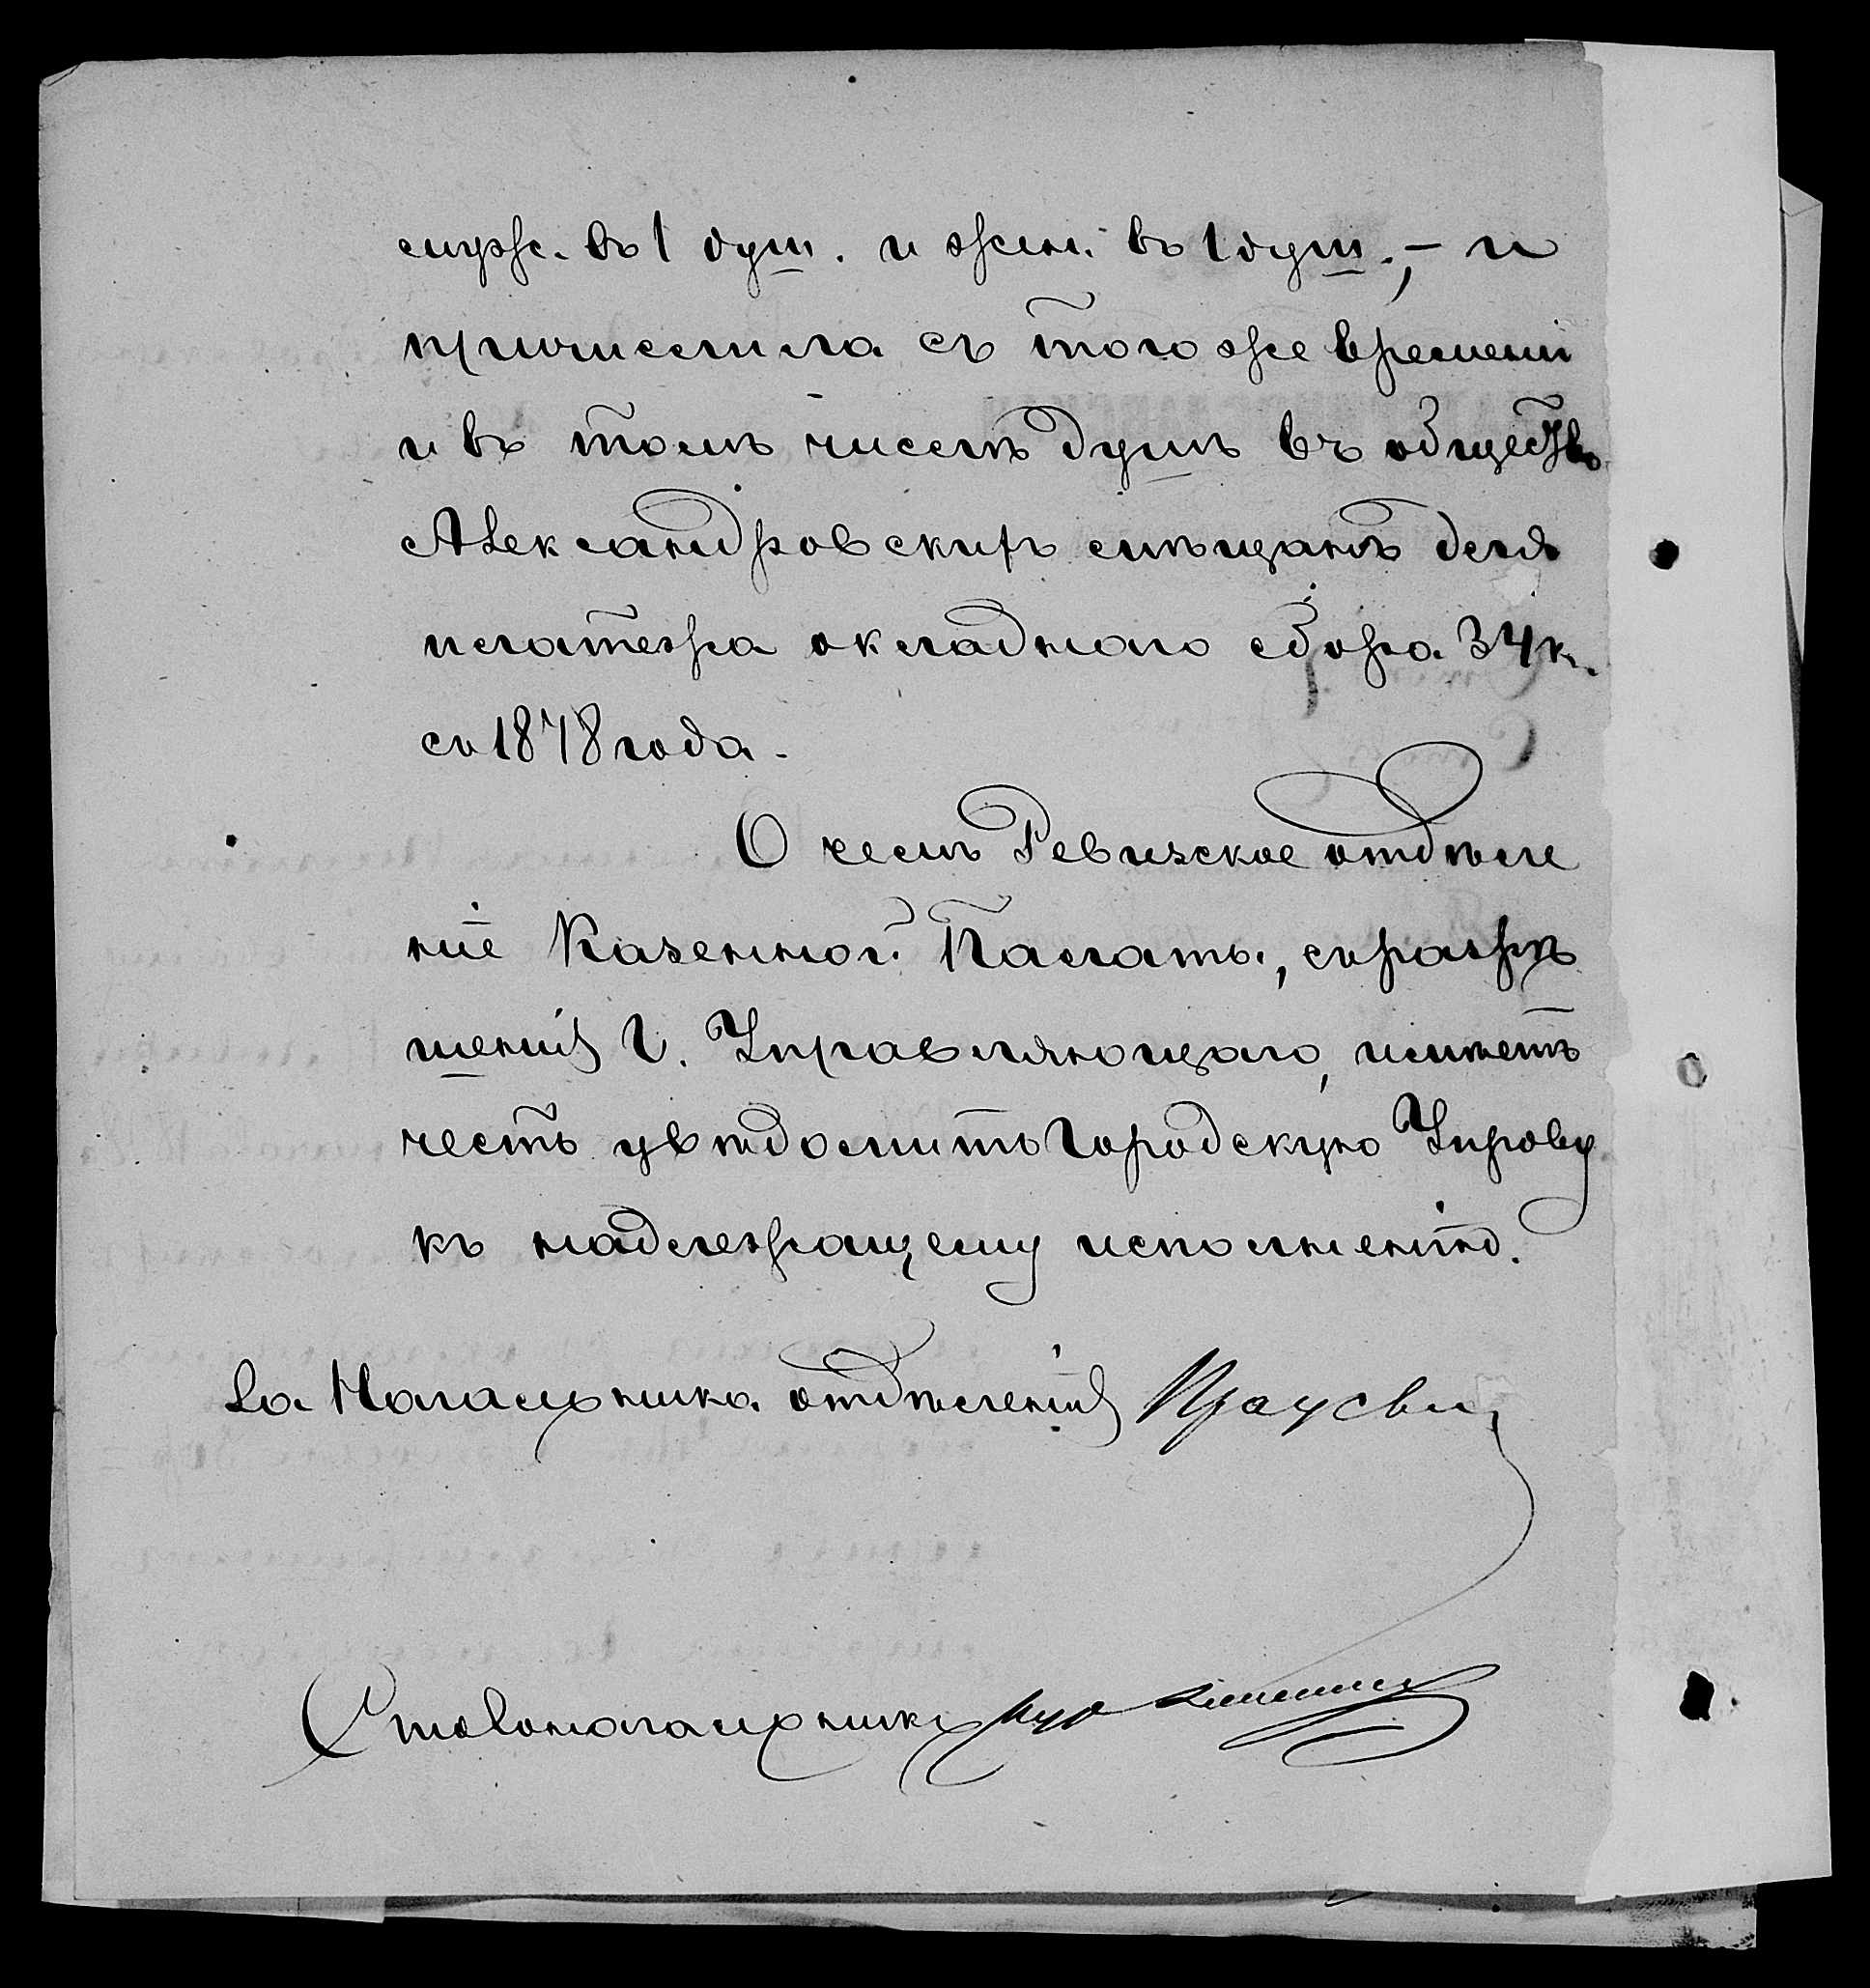 муж. въ 1 душ. и жен. въ 1 душ.,— и
причислила съ того же времени
и въ томъ числѣ душъ въ общество
Александровскихъ мѣщанъ для
платежа окладнаго сбора 34 к.
съ 1878 года.
О чемъ Ревизское отдѣле
ніе Казенной Палаты, съ разрѣ
шенія Г. Управляющаго, имѣетъ
честь увѣдомить Городскую Управу
къ надлежащему исполненію.
За Начальника отдѣленія
Столоначальникъ